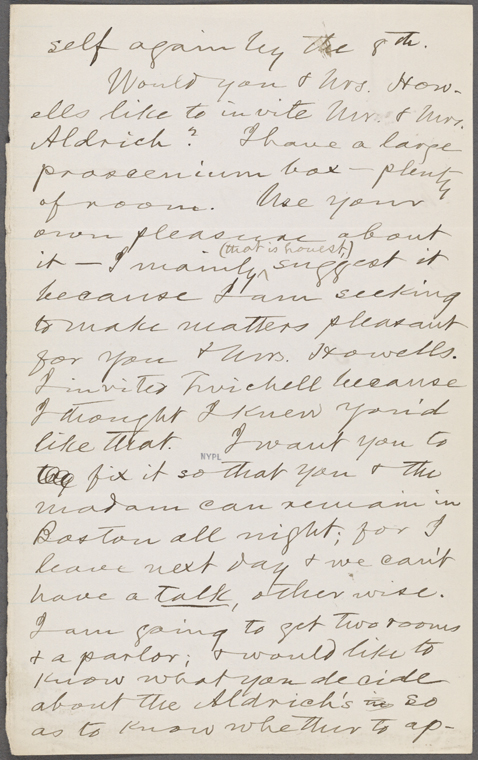 self again by the 8th.
Would you & Mrs. How-
ells like to invite Mr. & Mrs.
Aldrich? I have a large
proscenium box - plenty
of room. Use your
own pleasure about
it - I mainly (that is honest,) suggest it
because I am seeking
to make matters pleasant
for you & Mrs. Howells.
I invited Twichell because
I thought I knew you'd
like that. I want you to
fix it so that you & the
madam can remain in
Boston all night; for I
leave next day & we can't
have a talk, otherwise.
I am going to get two rooms
& a parlor; & would like to
know what you decide
about the Aldrich's so
as to know whether to ap-
NYPL